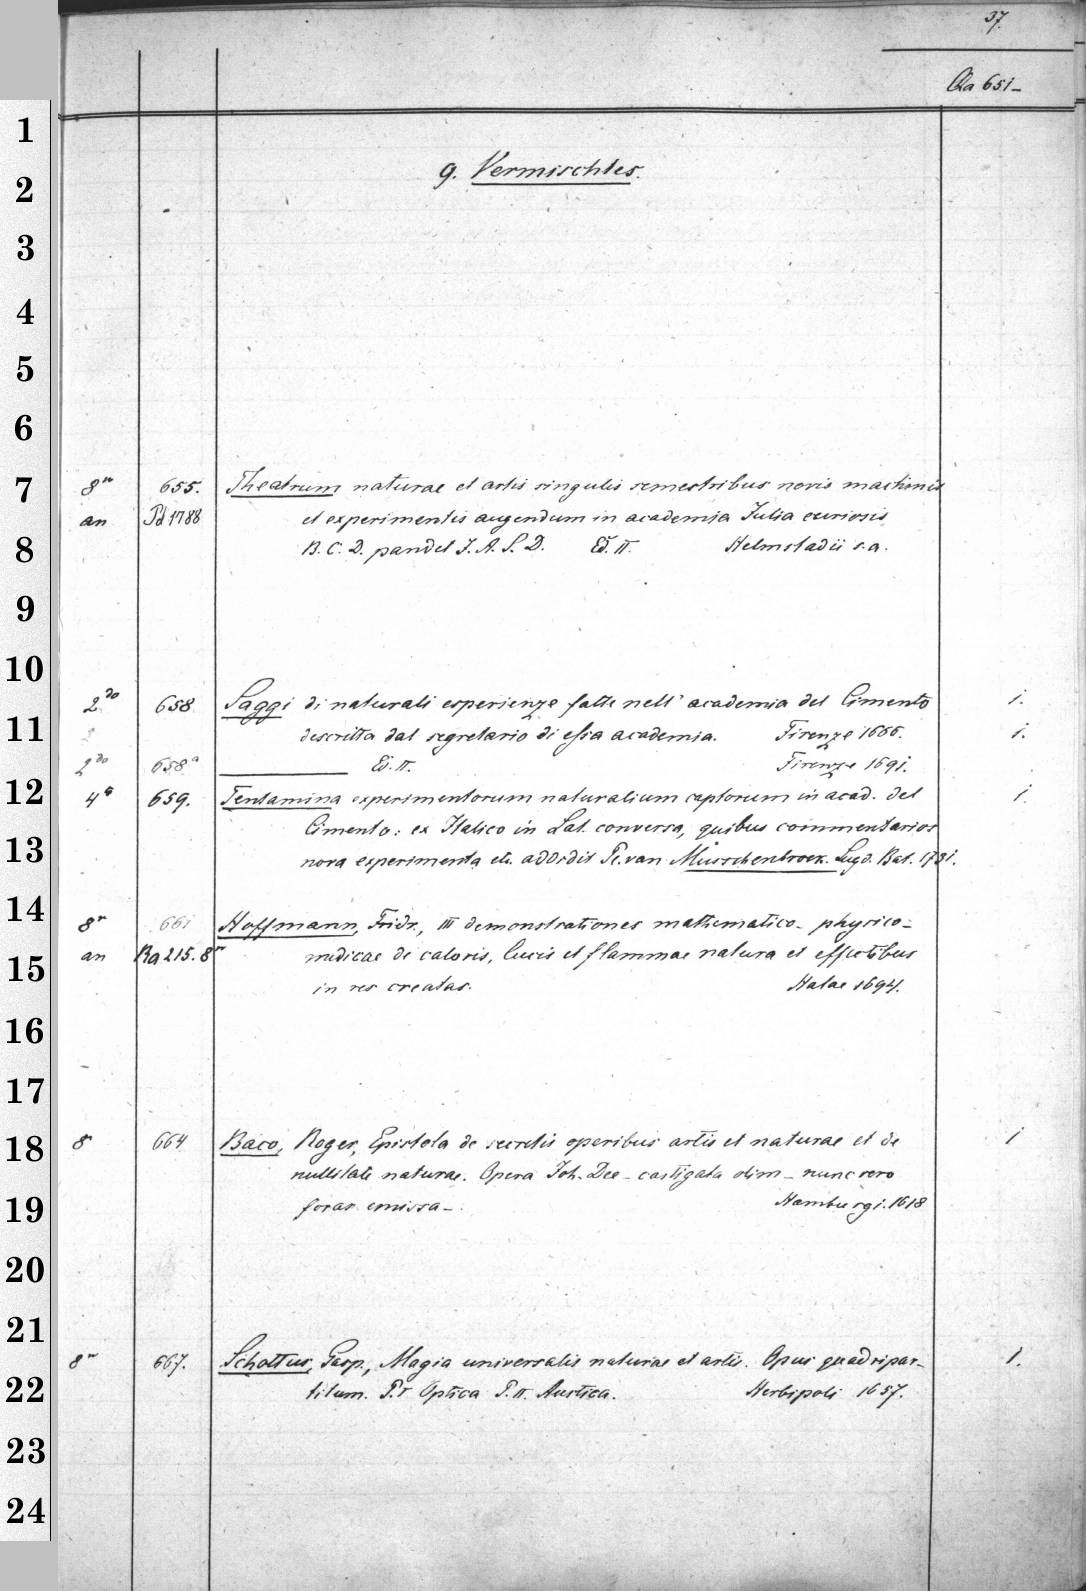 37.
Qa 651-
g. Vermischtes.
8° 655. Theatrum naturae et artis singulis semestribus novis machinis
an Pd 1788 et experimentis augendum in academia Julia curiosis
B. C. D. pandet J. A. S. D. Ed. II. Helmstadii s. a.
2do 658 Saggi di naturali esperienze fatte nell' academia del Cimento 1.
descritta dal segretario di essa academia. Firenze 1666. 1.
2do 658a Ed. II. Firenze 1691.
4° 659. Tentamina experimentorum naturalium captorum in acad. del 1.
Cimento: ex Italico in Lat. conversa, quibus commentarios
nova experimenta etc. addidit P. van Musschenbroek. Lugd. Bat. 1731.
8° 661 Hoffmann, Fridr., III demonstrationes mathematico- physico-
an Ba 215. 8° medicae de caloris, lucis et flammae natura et effectibus
in res creatas. Halae 1694.
8° 664 Baco, Roger, Epistola de secretis operibus artis et naturae et de 1
nullitate naturae. Opera Joh. Dee - castigata olim - nunc vero
foras emissa - Hamburgi. 1618
8° 667. Schottus, Gasp., Magia universalis naturae et artis. Opus quadripar- 1.
titum. P. I Optica P. II. Austica. Herbipoli 1657.
1
2
3
4
5
6
7
8
9
10
11
12
13
14
15
16
17
18
19
20
21
22
23
24